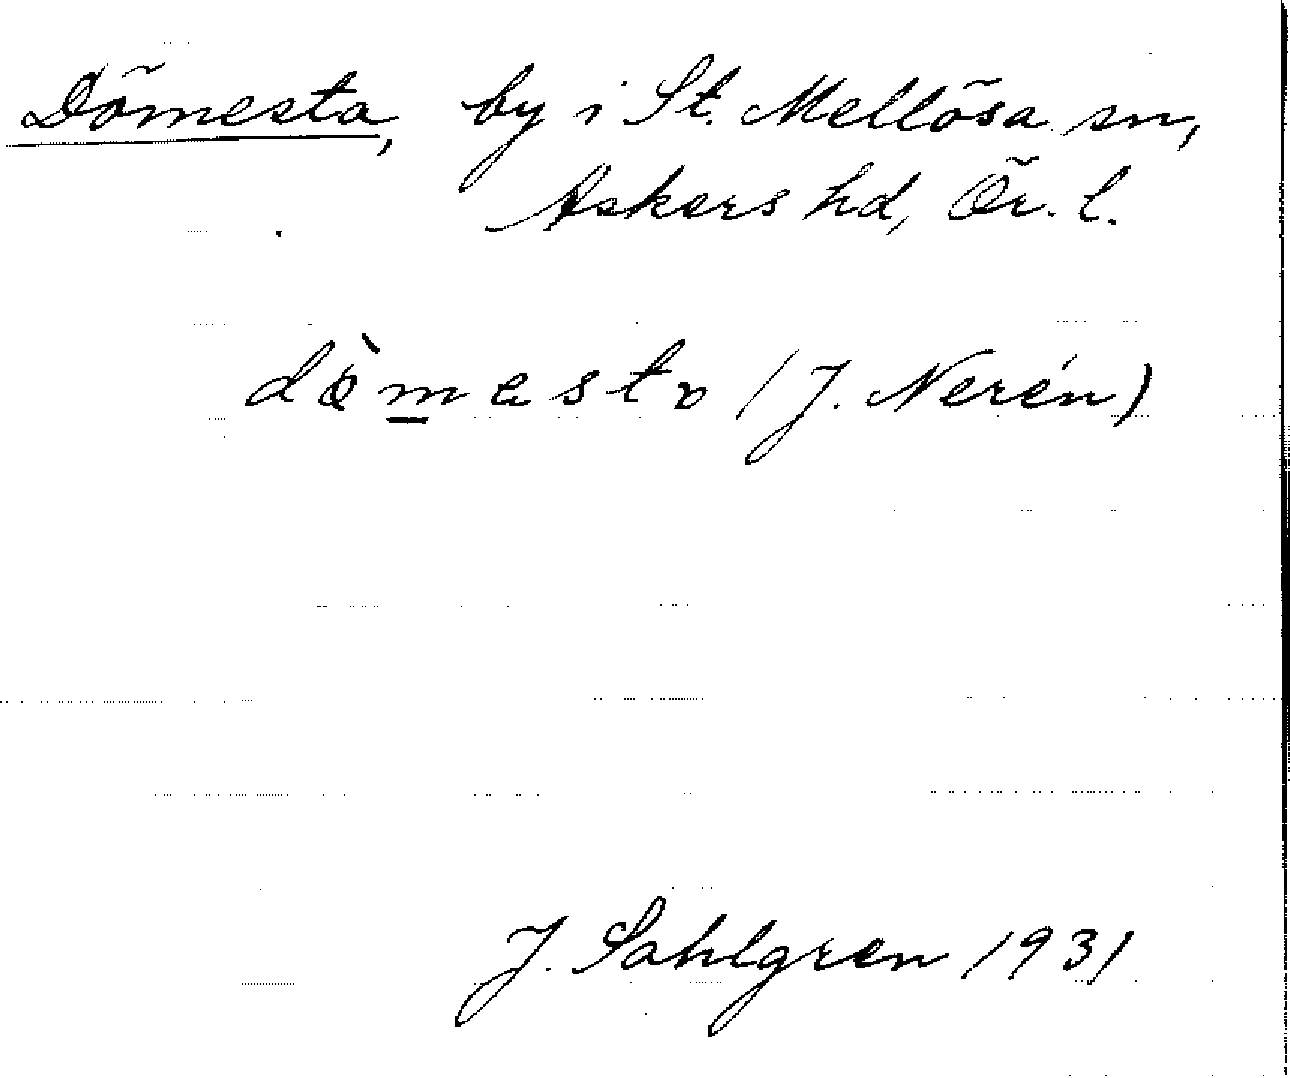 Dömesta, by i St. Mellösa sn,
Askers hd, Ör. l.
dö̀m̲esta (J. Nerén)
J. Sahlgren 1931